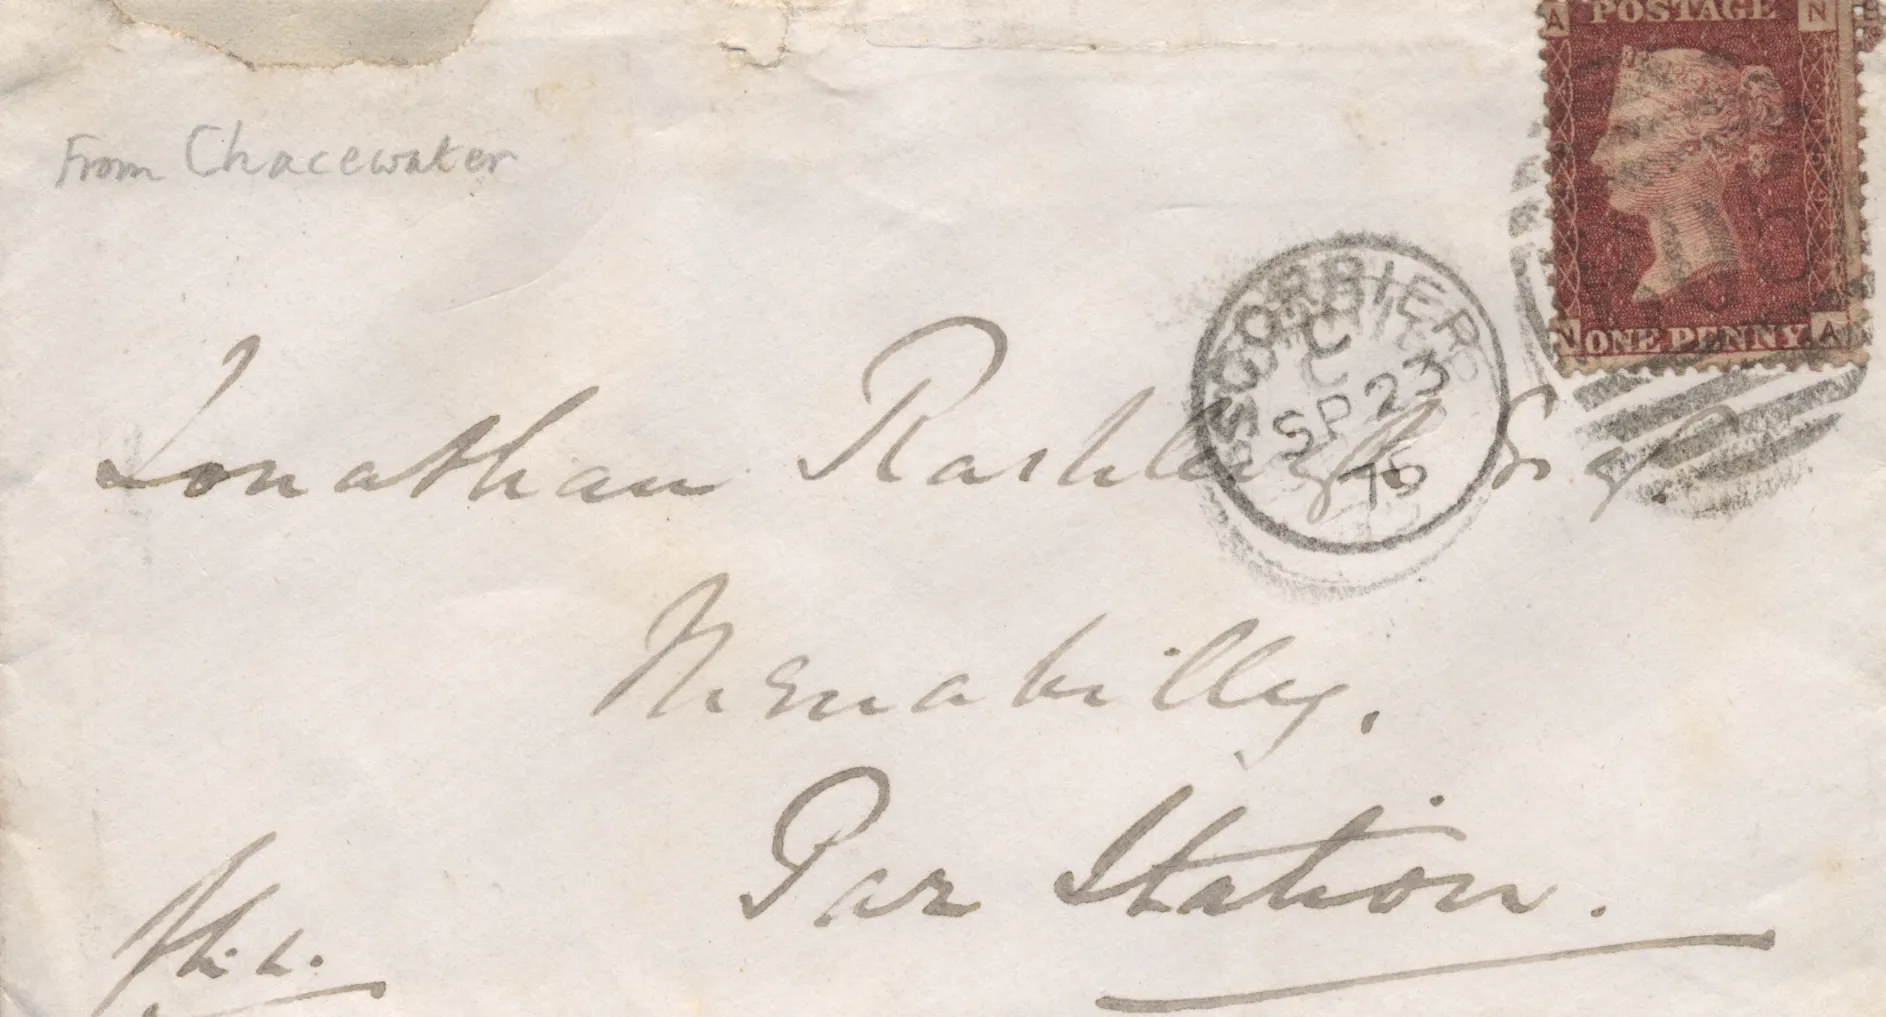 A POSTAGE N
From Chacewater
N ONE PENNY. A
SCORRIER
C
SP 23
75
Jonathan Rashleigh Esq.
Menabilly.
Par Station.